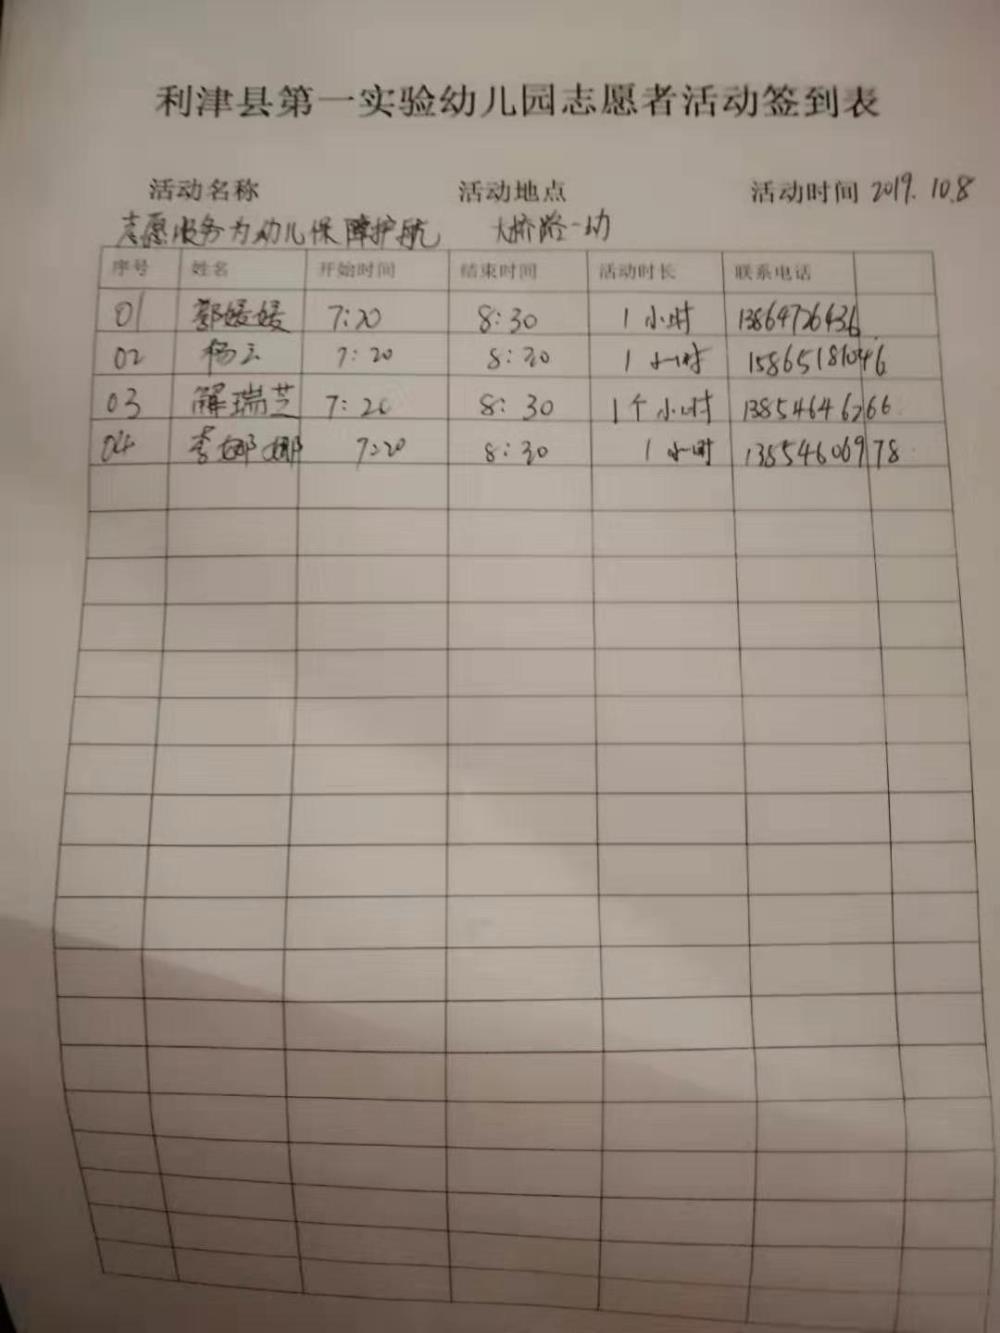 利津县第一实验幼儿园志愿者活动签到表
活动名称 活动地点 活动时间 2019.10.8
志愿服务为幼儿保障护航 大桥路一幼
序号 姓名 开始时间 结束时间 活动时长 联系电话
01 郭媛媛 7:20 8:30 1小时 13864726436
02 杨云 7:20 8:30 1小时 15865181046
03 解瑞芝 7:20 8:30 1个小时 13854646266
04 李娜娜 7:20 8:30 1小时 13854606978